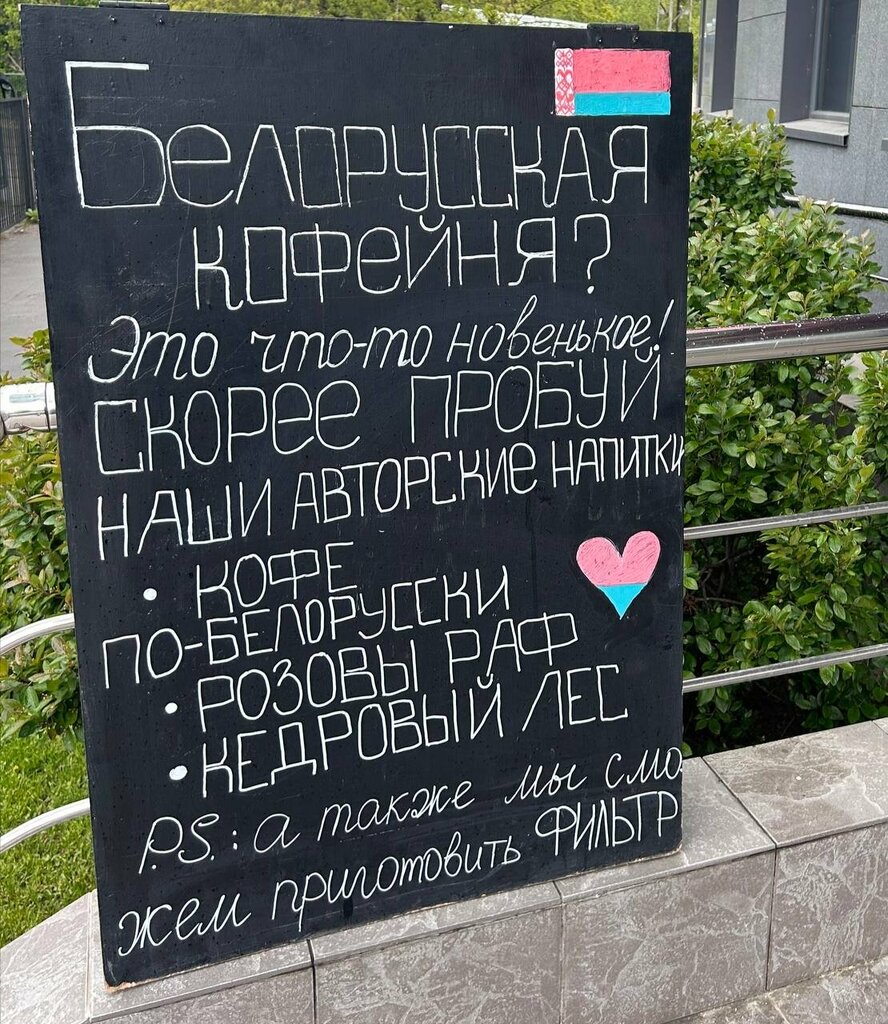 Белорусская
кофейня?
Это что-то новенькое!
СКОРЕЕ ПРОБУЙ
НАШИ АВТОРСКИЕ НАПИТКИ
• КОФЕ
ПО-БЕЛОРУССКИ
• РОЗОВЫ РАФ
• КЕДРОВЫЙ ЛЕС
P.S.: а также мы смо
жем приготовить ФИЛЬТР